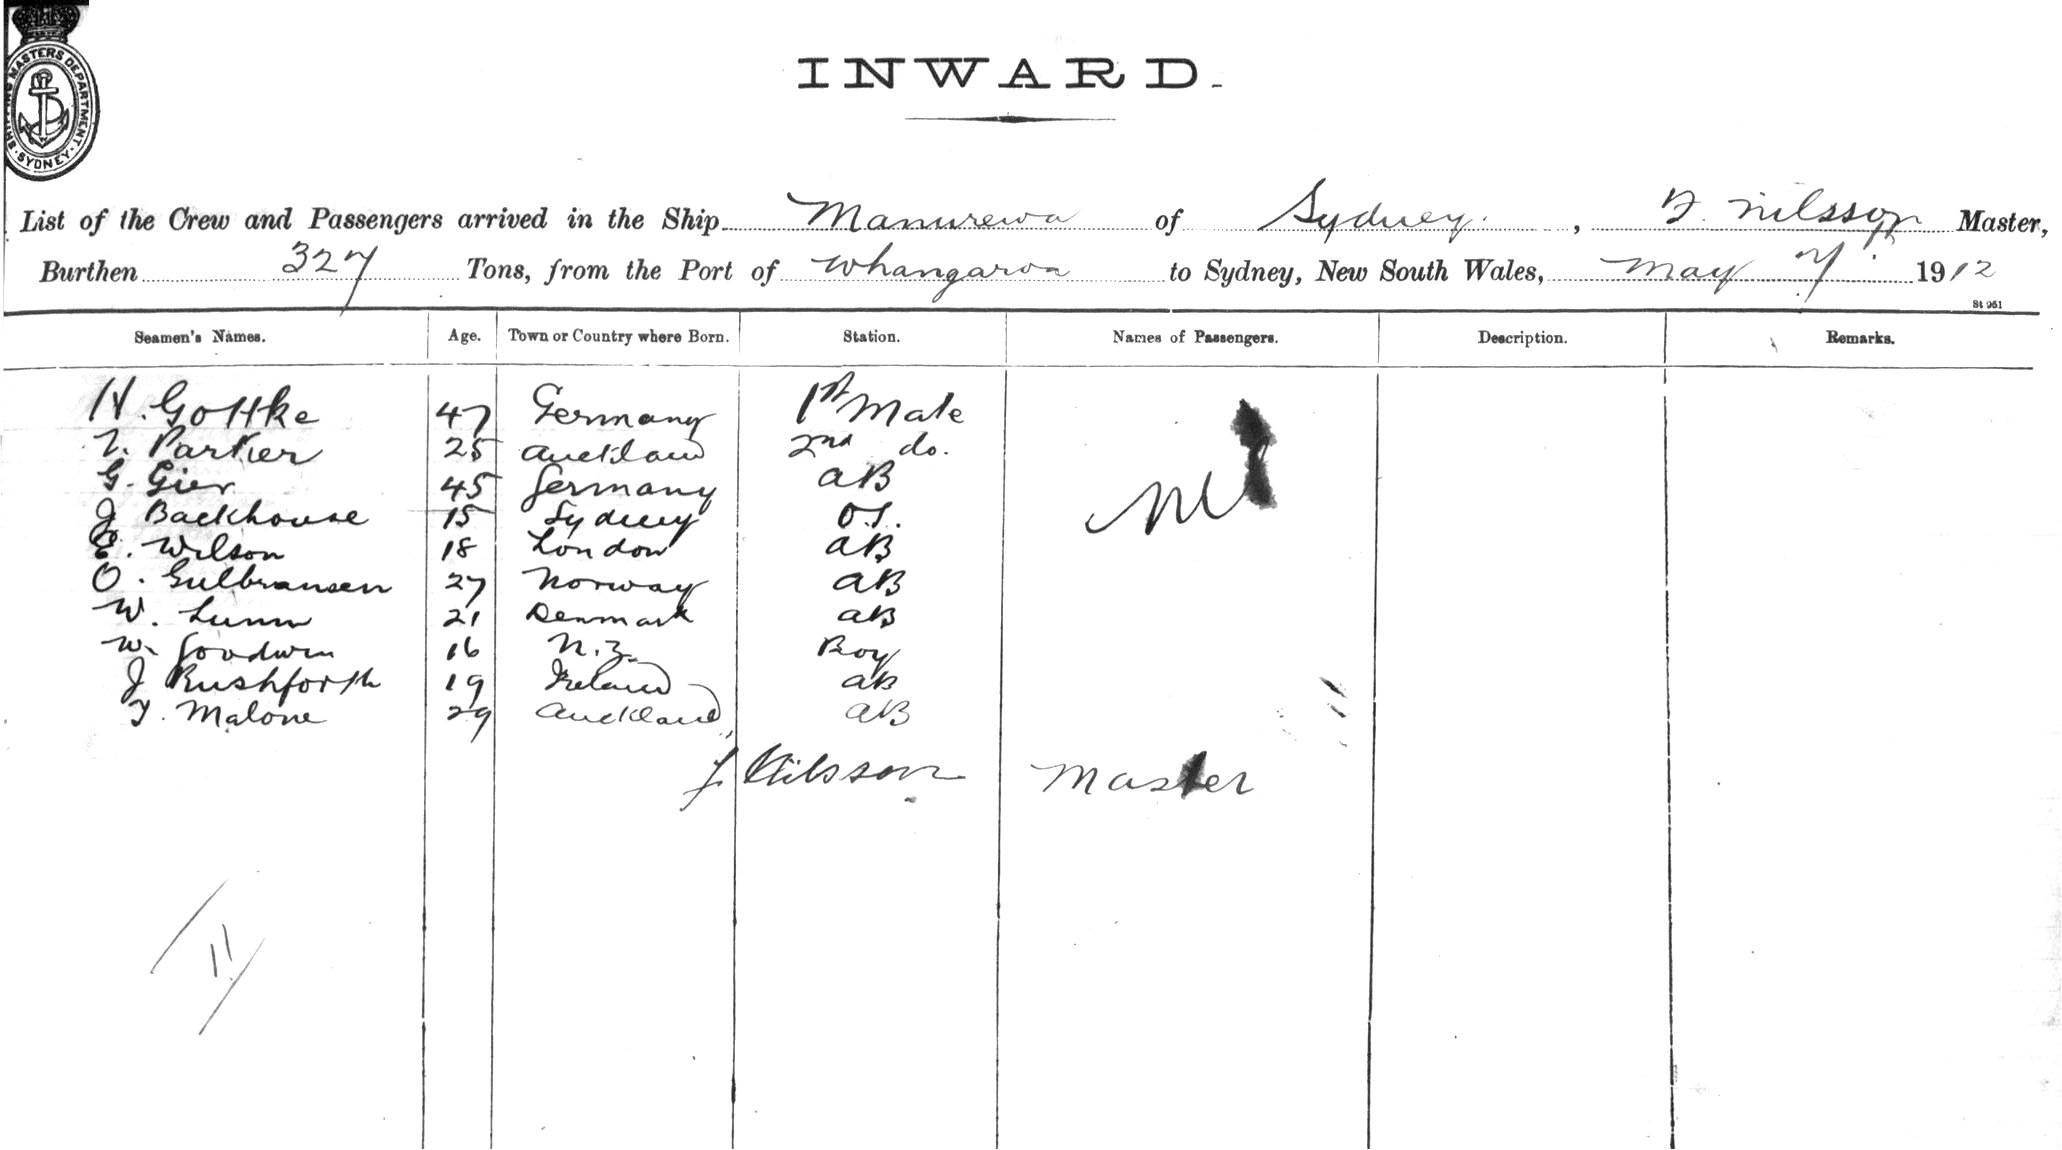 SHIPPING MASTERS DEPARTMENT · SYDNEY ·
INWARD.
List of the Crew and Passengers arrived in the Ship Manurewa of Sydney. , Nilsson Master,
Burthen 327 Tons, from the Port of Whangaroa to Sydney, New South Wales, May 7th 1912
St 951
Seamen's Names. Age. Town or Country where Born. Station. Names of Passengers. Description. Remarks.
H. Gottke 47 Germany 1st Mate
Parker 25 Auckland 2nd do.
G. Gier 45 Germany AB
J Backhouse 15 Sydney O.S.
E. Wilson 18 London AB
Nil
O. Gulbransen 27 Norway AB
W. Lunn 21 Denmark AB
W. Goodwin 16 N.Z. Boy
J Rushforth 19 Ireland AB
T. Malone 29 Auckland AB
Nilsson Master
11